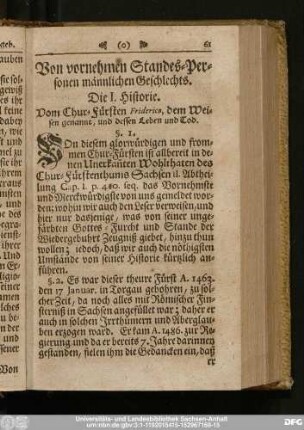 (o) 61
Von vornehmen Standes-Per-
sonen männlichen Geschlechts.
Die I. Historie.
Vom Chur-Fürsten Friderico, dem Wei-
sen genannt, und dessen Leben und Tod.
§. 1.
VOn diesem glorwürdigen und from-
men Chur-Fürsten ist allbereit in de-
nen Unerkanten Wohlthaten des
Chur-Fürstenthums Sachsen II. Abthei-
lung Cap. I. p. 480. seq. das Vornehmste
und Merckwürdigste von uns gemeldet wor-
den; wohin wir auch den Leser verweisen, und
hier nur dasjenige, was von seiner unge-
färbten Gottes-Furcht und Stande der
Wiedergebuhrt Zeugniß giebet, hinzu thun
wollen; jedoch, daß wir auch die nöthigsten
Umstände von seiner Historie kürtzlich an-
führen.
§. 2. Es war dieser theure Fürst A. 1463.
den 17 Januar. in Torgau gebohren, zu sol-
cher Zeit, da noch alles mit Römischer Fin-
sterniß in Sachsen angefüllet war; daher er
auch in solchen Irrthümern und Aberglau-
ben erzogen ward. Er kam A. 1486. zur Re-
gierung und da er bereits 7. Jahr darinnen
gestanden, fielen ihm die Gedancken ein, daß
er
Universitäts- und Landesbibliothek Sachsen-Anhalt
DFG